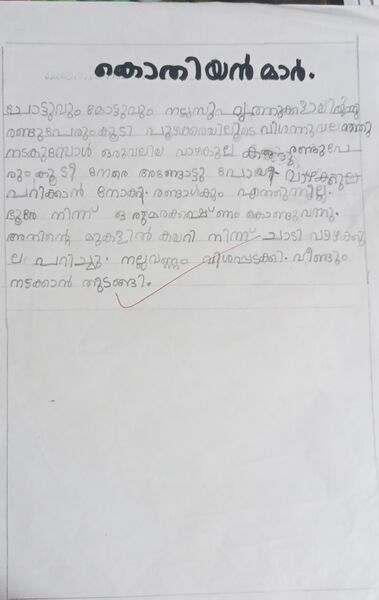 കൊതിയൻമാർ.
ചോട്ടുവും മോട്ടുവും നല്ല സുഹൃത്തുക്കളായിരുന്നു
രണ്ടുപേരുംകൂടി പുഴക്കരയിലൂടെ വിശന്നുവലഞ്ഞു
നടക്കുമ്പോൾ ഒരുവലിയ വാഴകുല കണ്ടു രണ്ടുപേ
രും കൂടി നേരെ അങ്ങോട്ടു പോയി വാഴക്കുല
പറിക്കാൻ നോക്കി. രണ്ടാൾകും എത്തുന്നില്ല.
ദൂരേ നിന്ന് ഒരു മരകഷ്ണം കൊണ്ടുവന്നു.
അതിന്റെ മുകളിൽ കയറി നിന്ന് ചാടി വാഴക്കു
ല പറിച്ചു. നല്ലവണ്ണം വിശപ്പടക്കി. വീണ്ടും
നടക്കാൻ തുടങ്ങി.